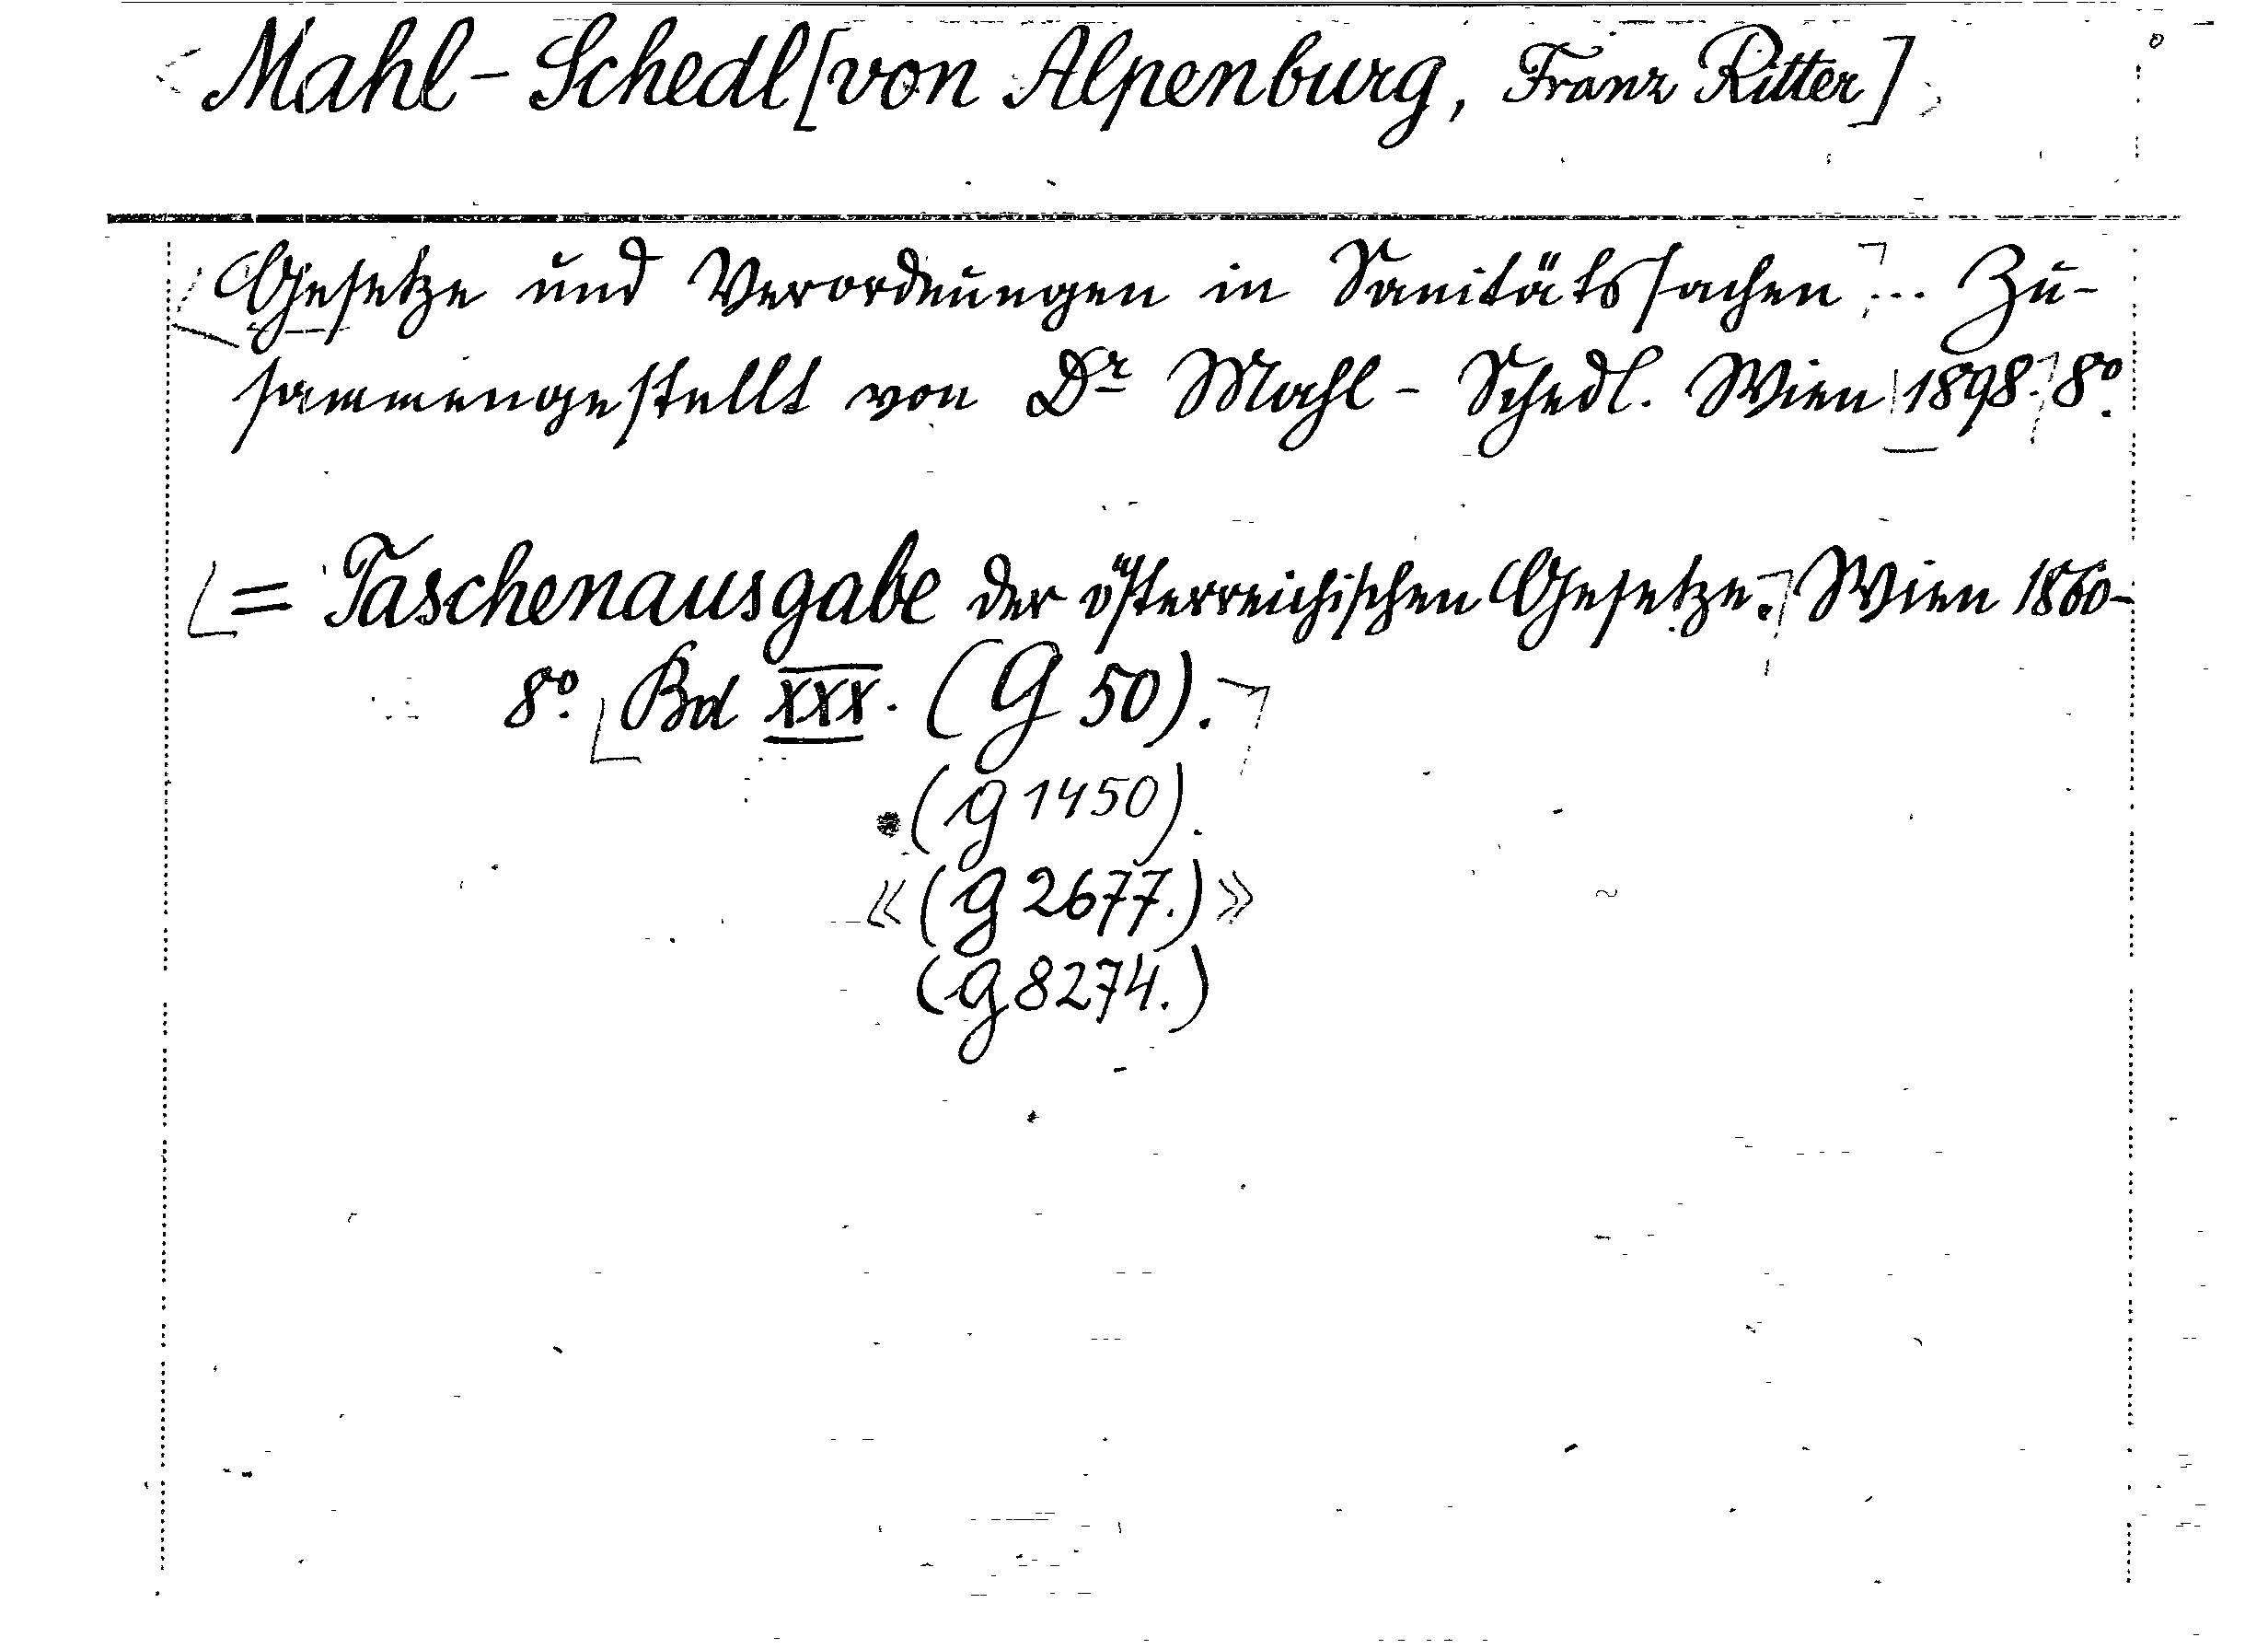 <Mahl-Schedl [von Alpenburg, Franz Ritter]>
Gesetze und Verordnungen in Sanitätssachen ... Zu-
sammengestellt von Dr Mahl-Schedl. Wien 1898. 8o.
= Taschenausgabe der österreichischen Gesetze. Wien 1860-
8o. Bd XXX. (G 50).
(g 1450).
«(g 2677.)»
(g 8274.)